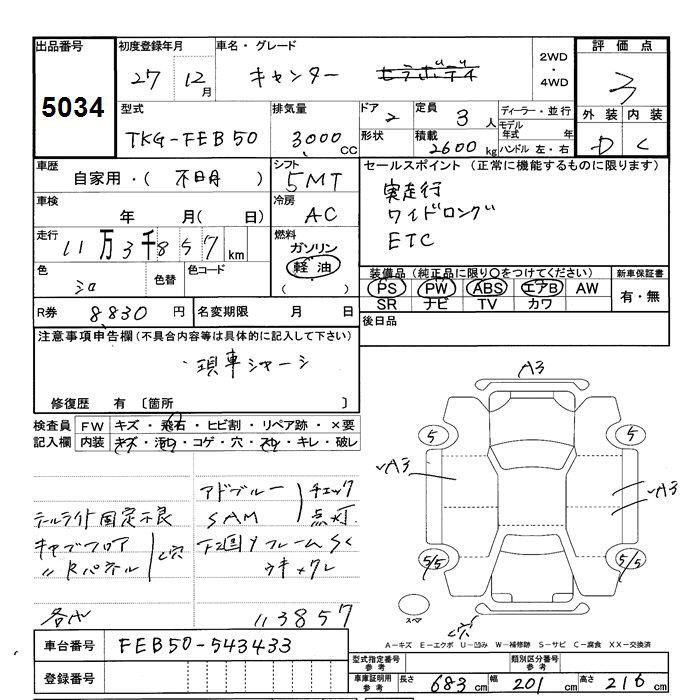 出品番号
5034
初度登録年月
27 12月
車名・グレード
キャンター
2WD
・
4WD
評価点
3
外装 内装
D C
型式
TKG-FEB50
排気量
3000 CC
ドア
2
定員
3人
形状
積載
2600 kg
ディーラー・並行
モデル年式 年
ハンドル 左・右
車歴
自家用・( 不明 )
シフト
5MT
セールスポイント (正常に機能するものに限ります)
実走行
ワイドロング
ETC
車検
年 月( 日)
冷房
AC
走行
11万3千857 km
燃料
ガソリン
軽油
( )
色
シロ
色替
色コード
装備品 (純正品に限り○をつけてください)
PS PW ABS エアB AW
SR ナビ TV カワ
新車保証書
有・無
R券 8,830 円
名変期限 月 日
後日品
注意事項申告欄 (不具合内容等は具体的に記入して下さい)
現車シャーシ
修復歴 有 〔箇所 〕
検査員記入欄
FW キズ・飛石・ヒビ割・リペア跡・×要
内装 キズ・汚レ・コゲ・穴・スレ・キレ・破レ
テールライト固定不良
キャブフロア
〃 Rパネル
C穴
アドブルー
SAM
チェック
点灯
フレームSC
113857
A3
5
5
A3
A3
5/5
5/5
スペア
C穴
A-キズ E-エクボ U-凹み W-補修跡 S-サビ C-腐食 XX-交換済
車台番号 FEB50-543433
登録番号
型式指定番号 参考
類別区分番号 参考
車庫証明用 参考
長さ 683 cm 幅 201 cm 高さ 216 cm